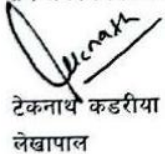 टेकनाथ कडरीया
लेखापाल